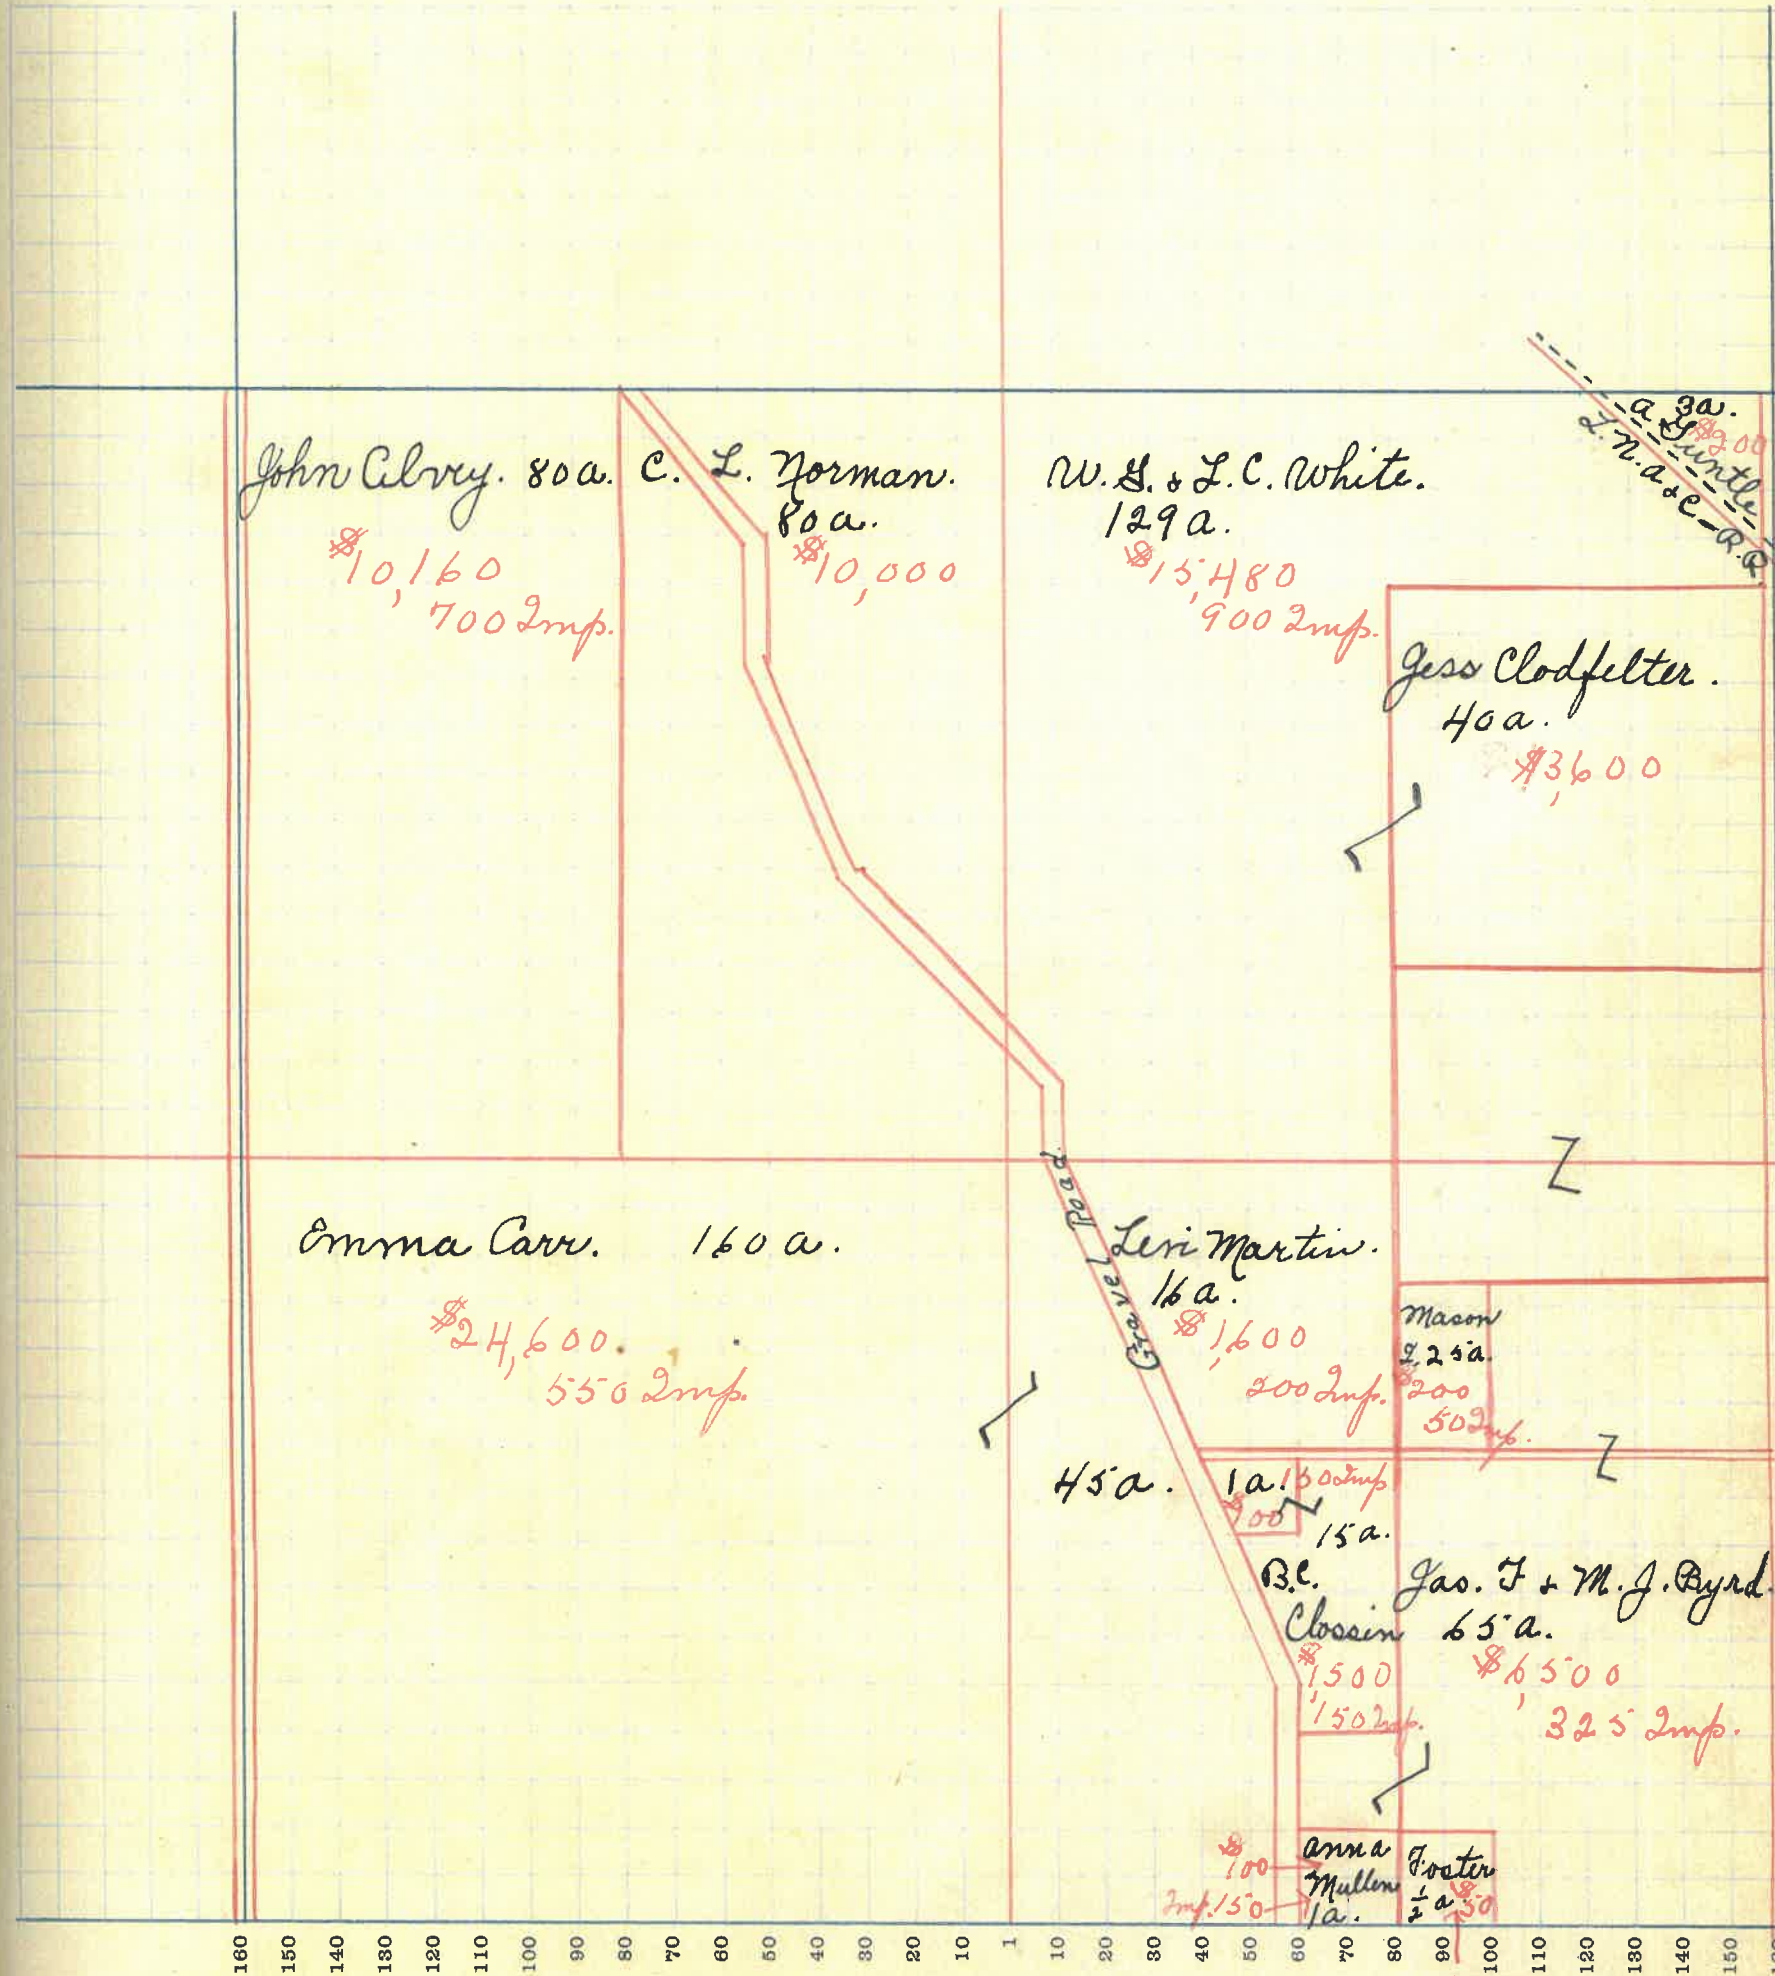 3a.
A. Guntle
$200
L. N. A. & C - R.R.
John Albry. 80a.
$10,160
700 Imp.
C. L. Norman.
80a.
$10,000
W. G. & L. C. White.
129a.
$15,480
900 Imp.
Jess Clodfelter.
40a.
$3,600
Emma Carr. 160a.
$24,600.
550 Imp.
Gravel Road
Levi Martin.
16a.
$1,600
200 Imp.
Mason
2.25a.
$200
50 Imp.
45a.
1a. 150 Imp
$100
15a.
B.C.
Clossin
$1,500
150 Imp.
Jas. F & M. J. Byrd.
65a.
$6,500
325 Imp.
$100
Imp. 150
Anna
Mullen
1a.
Foster
1/2 a
$50
160 150 140 130 120 110 100 90 80 70 60 50 40 30 20 10 1 10 20 30 40 50 60 70 80 90 100 110 120 130 140 150